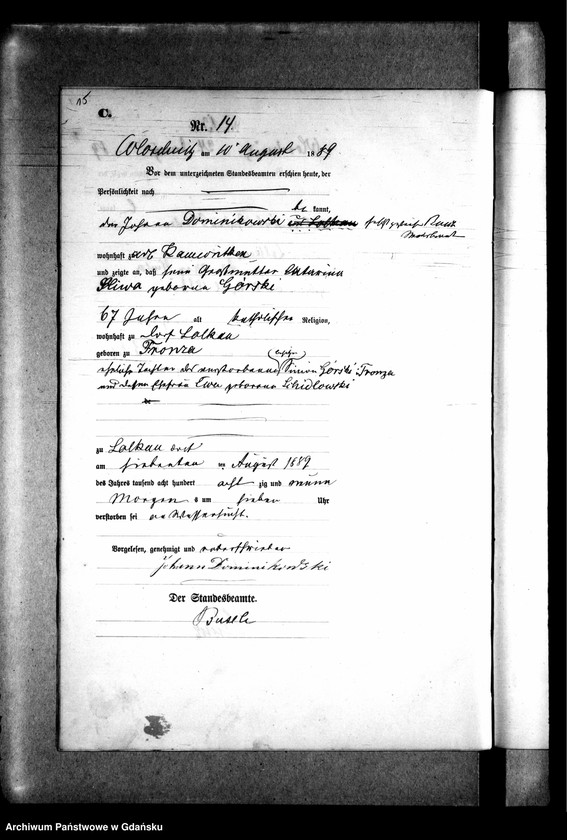 15
C.
Nr. 14.
am 10 August 1889
Vor dem unterzeichneten Standesbeamten erschien heute, der
Persönlichkeit nach
be kannt,
der Johann Dominikowski
wohnhaft zu
und zeigte an, daß seine Großmutter Catarina
Sliwa geborene Górski
67 Jahre alt katholischer Religion,
wohnhaft zu Dorf Lalkau
geboren zu Fronza
eheliche Tochter des verstorbenen Simon Górski Fronza
und dessen Ehefrau Ewa geborene
zu Lalkau Dorf
am siebenten ten August 1889
des Jahres tausend acht hundert acht zig und neun
Morgens um sieben Uhr
verstorben sei an Wassersucht.
Vorgelesen, genehmigt und unterschrieben
Johann Dominikowski
Der Standesbeamte.
Archiwum Państwowe w Gdańsku